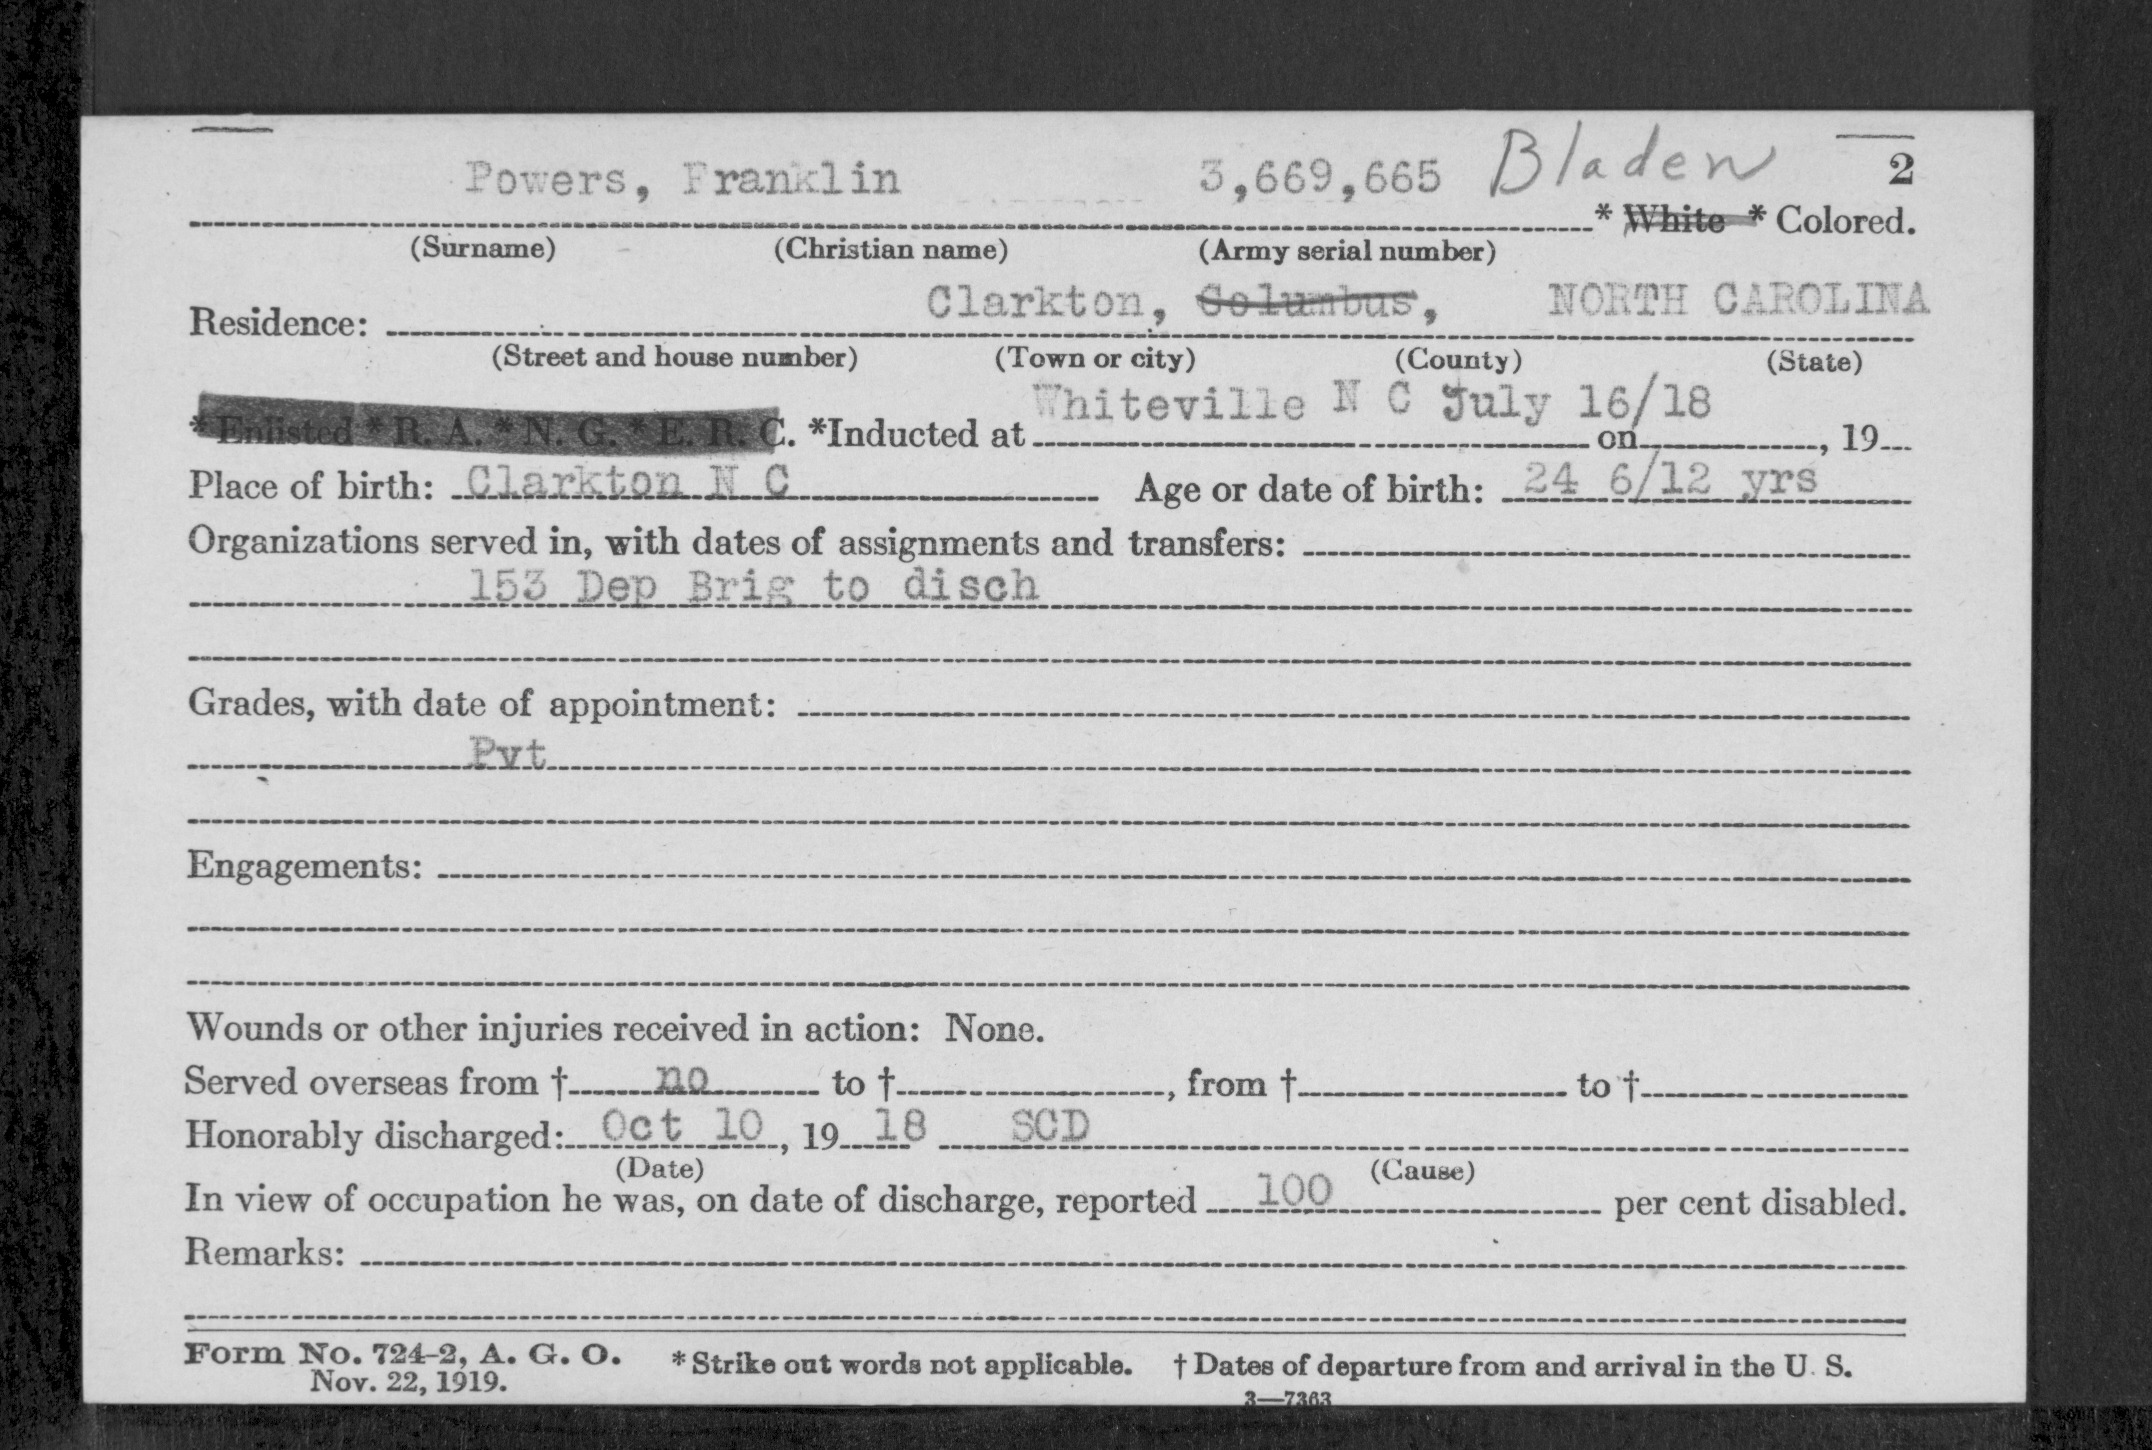 Powers, Franklin 3,669,665 Bladen 2
* White * Colored.
(Surname) (Christian name) (Army serial number)
Residence: Clarkton, Columbus, NORTH CAROLINA
(Street and house number) (Town or city) (County) (State)
* Enlisted * R. A. * N. G. * E. R. C. *Inducted at Whiteville N C July 16/18 on , 19
Place of birth: Clarkton N C Age or date of birth: 24 6/12 yrs
Organizations served in, with dates of assignments and transfers:
153 Dep Brig to disch
Grades, with date of appointment:
Pvt
Engagements:
Wounds or other injuries received in action: None.
Served overseas from † no to † , from † to †
Honorably discharged: Oct 10 , 19 18 SCD
(Date) (Cause)
In view of occupation he was, on date of discharge, reported 100 per cent disabled.
Remarks:
Form No. 724-2, A. G. O. * Strike out words not applicable. † Dates of departure from and arrival in the U. S.
Nov. 22, 1919.
3—7363